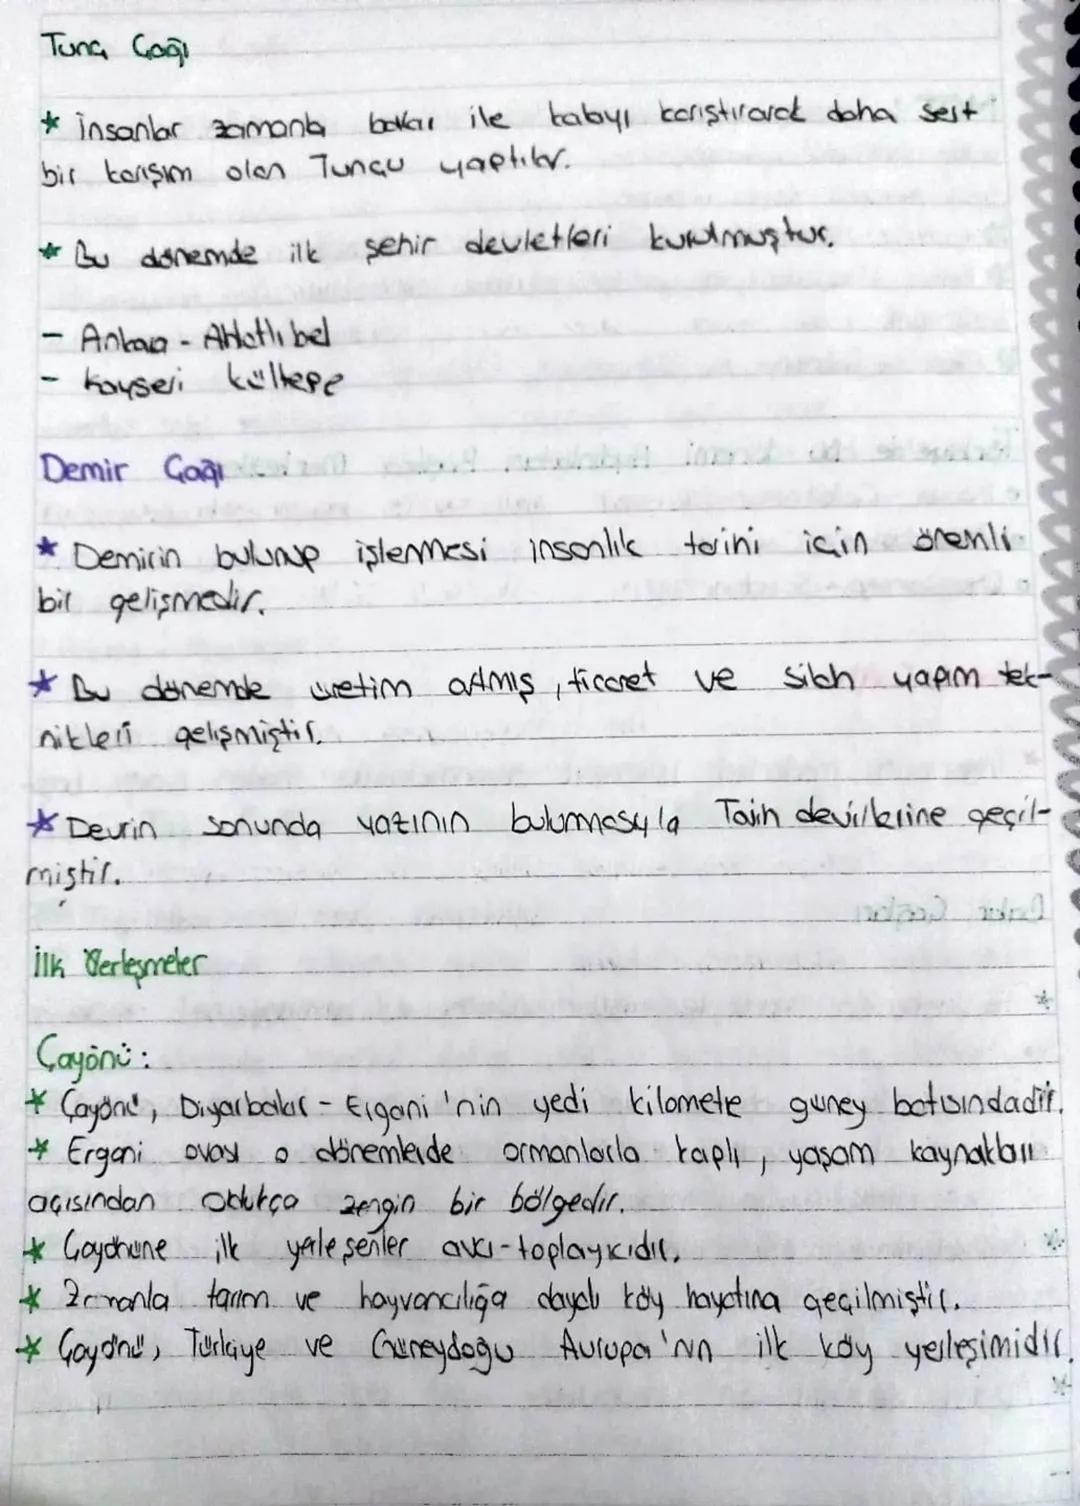 Tunç Çağı
* İnsanlar zamanla bakır ile kalayı karıştırarak daha sert
bir karışım olan Tuncu yaptılar.
* Bu dönemde ilk şehir devletleri kurulmuştur.
- Ankara - Ahlatlıbel
- Kayseri Kültepe
Demir Çağı
* Demirin bulunup işlenmesi insanlık tarihi için önemli
bir gelişmedir.
* Bu dönemde üretim artmış, ticaret ve silah yapım tek-
nikleri gelişmiştir.
* Devrin sonunda yazının bulunmasıyla Tarih devirlerine geçil-
miştir.
İlk Yerleşmeler
Çayönü:
* Çayönü, Diyarbakır - Ergani'nin yedi kilometre güney batısındadır.
* Ergani ovası o dönemlerde ormanlarla kaplı, yaşam kaynakları
açısından oldukça zengin bir bölgedir.
* Çayönüne ilk yerleşenler avcı-toplayıcıdır.
* Zamanla tarım ve hayvancılığa dayalı köy hayatına geçilmiştir.
* Çayönü, Türkiye ve Güneydoğu Avrupa'nın ilk köy yerleşimidir.